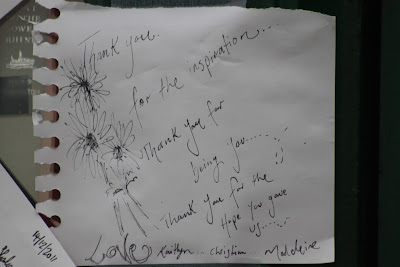 Thank you.
for the inspiration....
Thank you for
being you......
Thank you for the
Hope you gave
us.....
Love Kaitlyn... Christian Madeleine
14/12/2011